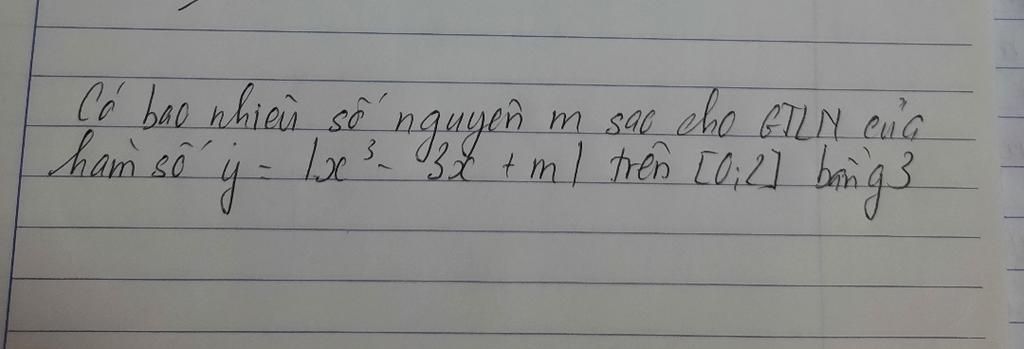 Có bao nhiêu số nguyên m sao cho GTLN của
hàm số y = |x³ - 3x + m| trên [0;2] bằng 3